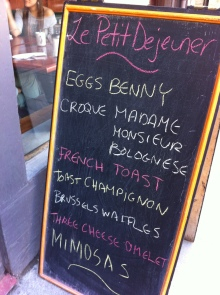 Le Petit Dejeuner
EGGS BENNY
CROQUE MADAME
MONSIEUR
BOLOGNESE
FRENCH TOAST
TOAST CHAMPIGNON
BRUSSELS WAFFLES
THREE CHEESE OMELET
MIMOSAS